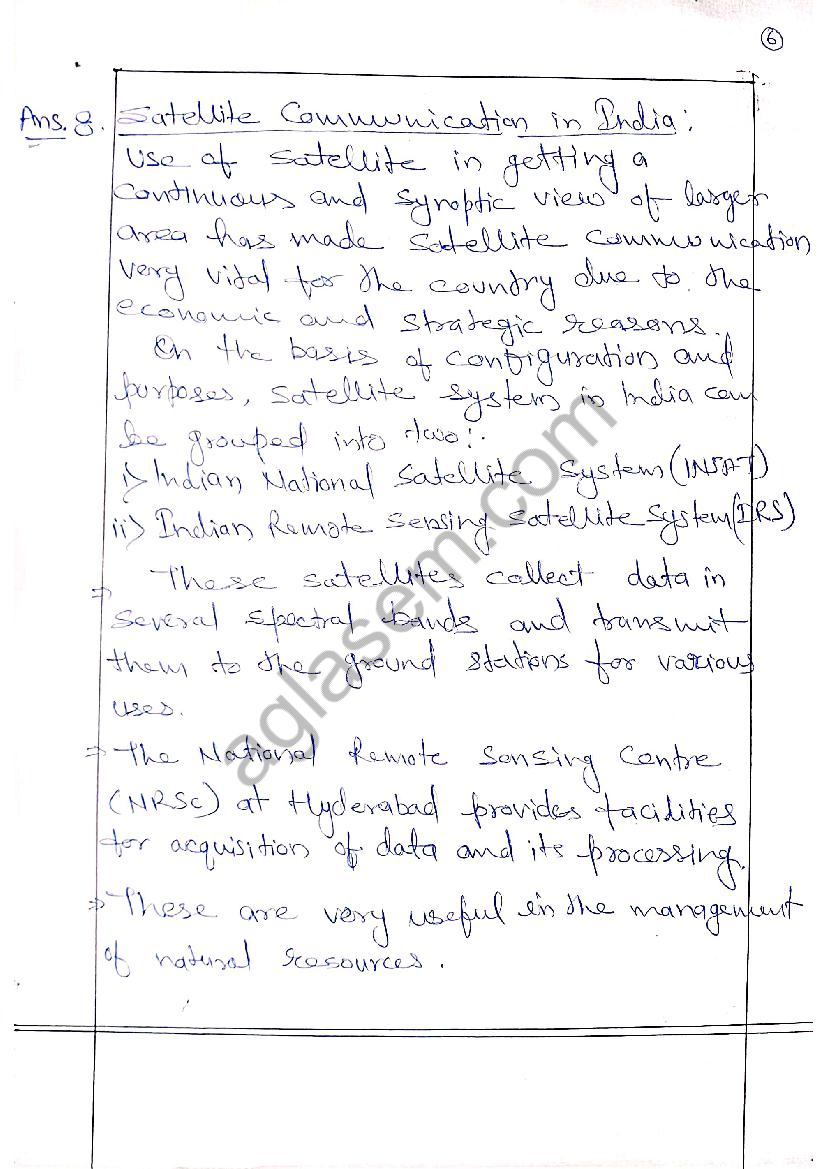 6
Ans. 8. Satellite Communication in India:
Use of satellite in getting a
continuous and synoptic view of larger
area has made satellite communication
very vital for the country due to the
economic and strategic reasons.
On the basis of configuration and
purposes, satellite system in India can
be grouped into two:
i) Indian National Satellite System (INSAT)
ii) Indian Remote Sensing Satellite System (IRS)
⇒ These satellites collect data in
several spectral bands and transmit
them to the ground stations for various
uses.
⇒ The National Remote Sensing Centre
(NRSC) at Hyderabad provides facilities
for acquisition of data and its processing.
⇒ These are very useful in the management
of natural resources.
aglasem.com